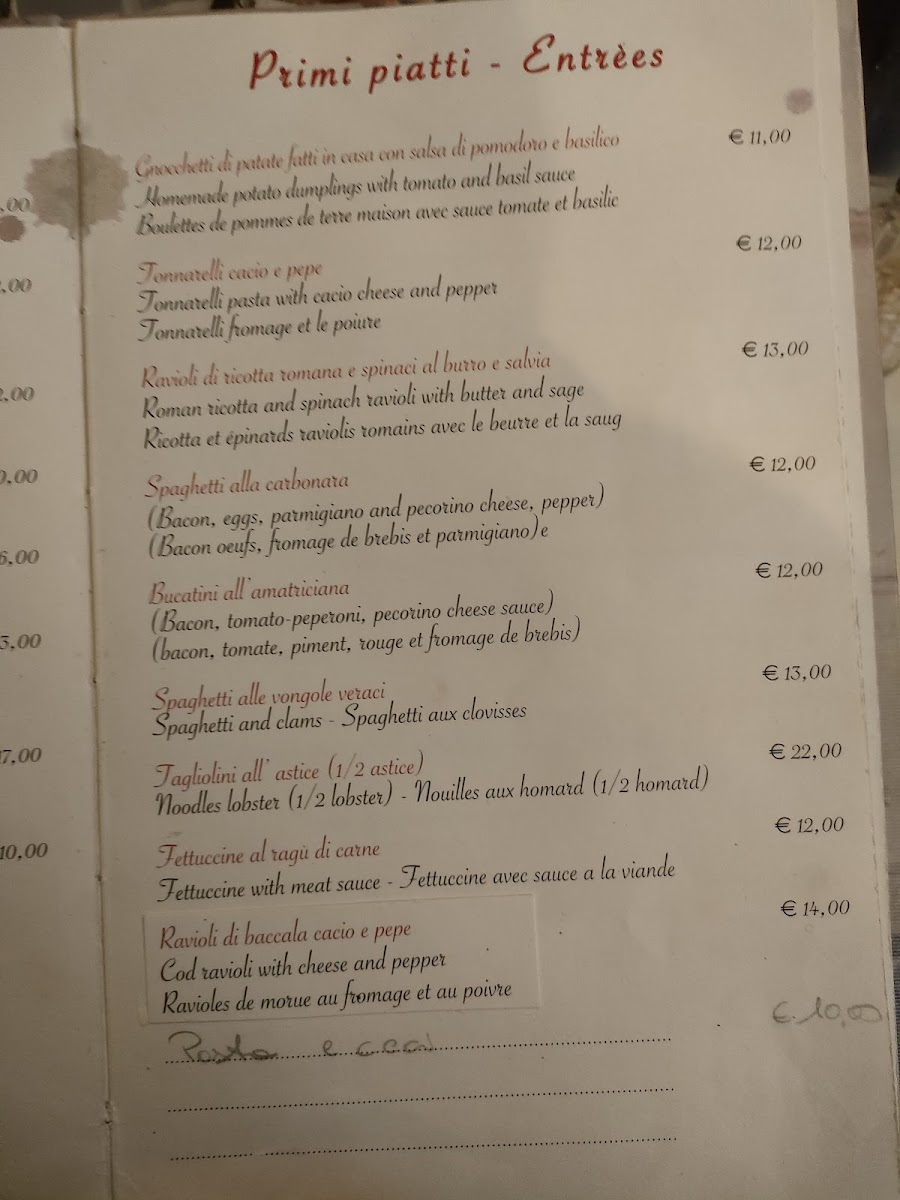 Primi piatti - Entrèes
Gnocchetti di patate fatti in casa con salsa di pomodoro e basilico € 11,00
Homemade potato dumplings with tomato and basil sauce
Boulettes de pommes de terre maison avec sauce tomate et basilic
Tonnarelli cacio e pepe € 12,00
Tonnarelli pasta with cacio cheese and pepper
Tonnarelli fromage et le poiure
Ravioli di ricotta romana e spinaci al burro e salvia € 13,00
Roman ricotta and spinach ravioli with butter and sage
Ricotta et épinards raviolis romains avec le beurre et la saug
Spaghetti alla carbonara € 12,00
(Bacon, eggs, parmigiano and pecorino cheese, pepper)
(Bacon oeufs, fromage de brebis et parmigiano)e
Bucatini all'amatriciana € 12,00
(Bacon, tomato-peperoni, pecorino cheese sauce)
(bacon, tomate, piment, rouge et fromage de brebis)
Spaghetti alle vongole veraci € 13,00
Spaghetti and clams - Spaghetti aux clovisses
Tagliolini all' astice (1/2 astice) € 22,00
Noodles lobster (1/2 lobster) - Nouilles aux homard (1/2 homard)
Fettuccine al ragù di carne € 12,00
Fettuccine with meat sauce - Fettuccine avec sauce a la viande
Ravioli di baccala cacio e pepe € 14,00
Cod ravioli with cheese and pepper
Ravioles de morue au fromage et au poivre
Pasta e ceci €. 10,00